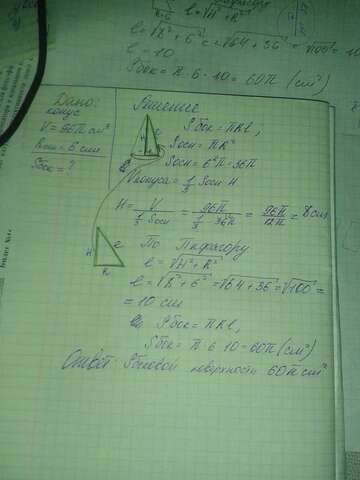 l = √H² + R²
l = √8² + 6² = √64 + 36 = √100 = 10
l = 10
Sбок = π · 6 · 10 = 60π (см²)
Дано:
конус
V = 96π см³
Rосн = 6 см
Sбок = ?
Решение
Sбок = πRl,
Sосн = πR²
Sосн = 6²π = 36π
Vконуса = 1/3 Sосн · H
H = V / (1/3 Sосн) = 96π / (1/3 36π) = 96π / 12π = 8 см
H l
R
По Пифагору
l = √H² + R²
l = √8² + 6² = √64 + 36 = √100 =
= 10 см
Sбок = πRl
Sбок = π · 6 · 10 = 60π (см²)
Ответ: Sбоковой поверхности 60π см²